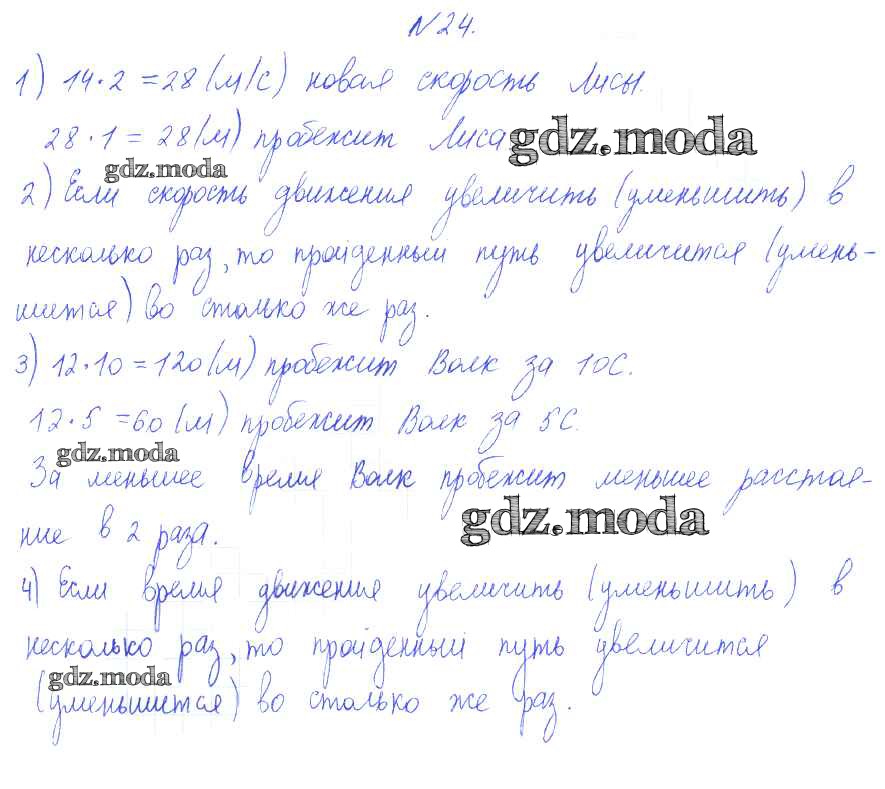 №24.
1) 14·2=28(м/с) новая скорость Лисы.
28·1=28(м) пробежит Лиса
gdz.moda
gdz.moda
2) Если скорость движения увеличить (уменьшить) в
несколько раз, то пройденный путь увеличится (умень-
шится) во столько же раз.
3) 12·10=120(м) пробежит Волк за 10с.
12·5=60(м) пробежит Волк за 5с.
gdz.moda
За меньшее время Волк пробежит меньшее расстоя-
gdz.moda
ние в 2 раза.
4) Если время движения увеличить (уменьшить) в
несколько раз, то пройденный путь увеличится
gdz.moda
(уменьшится) во столько же раз.